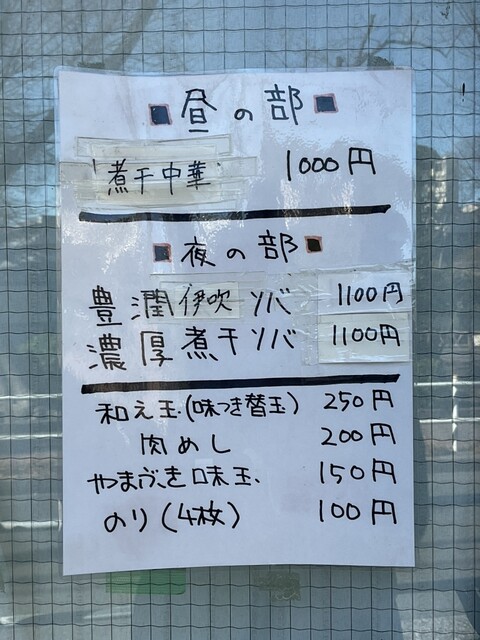 ■昼の部■
煮干中華 1000円
■夜の部■
豊潤伊吹ソバ 1100円
濃厚煮干ソバ 1100円
和え玉(味つき替玉) 250円
肉めし 200円
やまぶき味玉 150円
のり(4枚) 100円